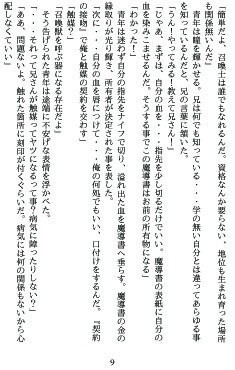 「簡単だよ。召喚士は誰でもなれるんだ。資格なんか要らない、地位も生まれ育った場所
も関係無いんだ」
青年は瞳を輝かせる。兄は何でも知っている・・・学の無い自分とは違ってあらゆる事
を知っているんだと、兄の言葉に頷いた。
「うん！やってみる！教えて兄さん！」
「じゃあ、まずは、自分の血を・・・指先を少し切るだけでいい。魔導書の表紙に自分の
血を染みこませるんだ。そうする事でこの魔導書はお前の所有物になる」
「わかった！」
青年は迷わず自分の指先をナイフで切り、溢れ出た血を魔導書へ垂らす。魔導書の金の
縁取りが光り輝き、所有者が決定された事を表した。
「次に・・・自分の血を唇につけて・・・俺の何処でもいい、口付けをするんだ。『契約
の接吻』で俺と触媒の契約を交わす」
「触媒？」
「召喚獣を呼ぶ器になる存在だよ」
そう告げられた青年は途端に不安げな表情を浮かべる。
「・・・それって兄さんが触媒ってヤツになるって事？病気に障ったりしない？」
「ああ、問題ないよ。触れた箇所に刻印が付くぐらいだ。病気には何の関係もないから心
配しなくていい」
9